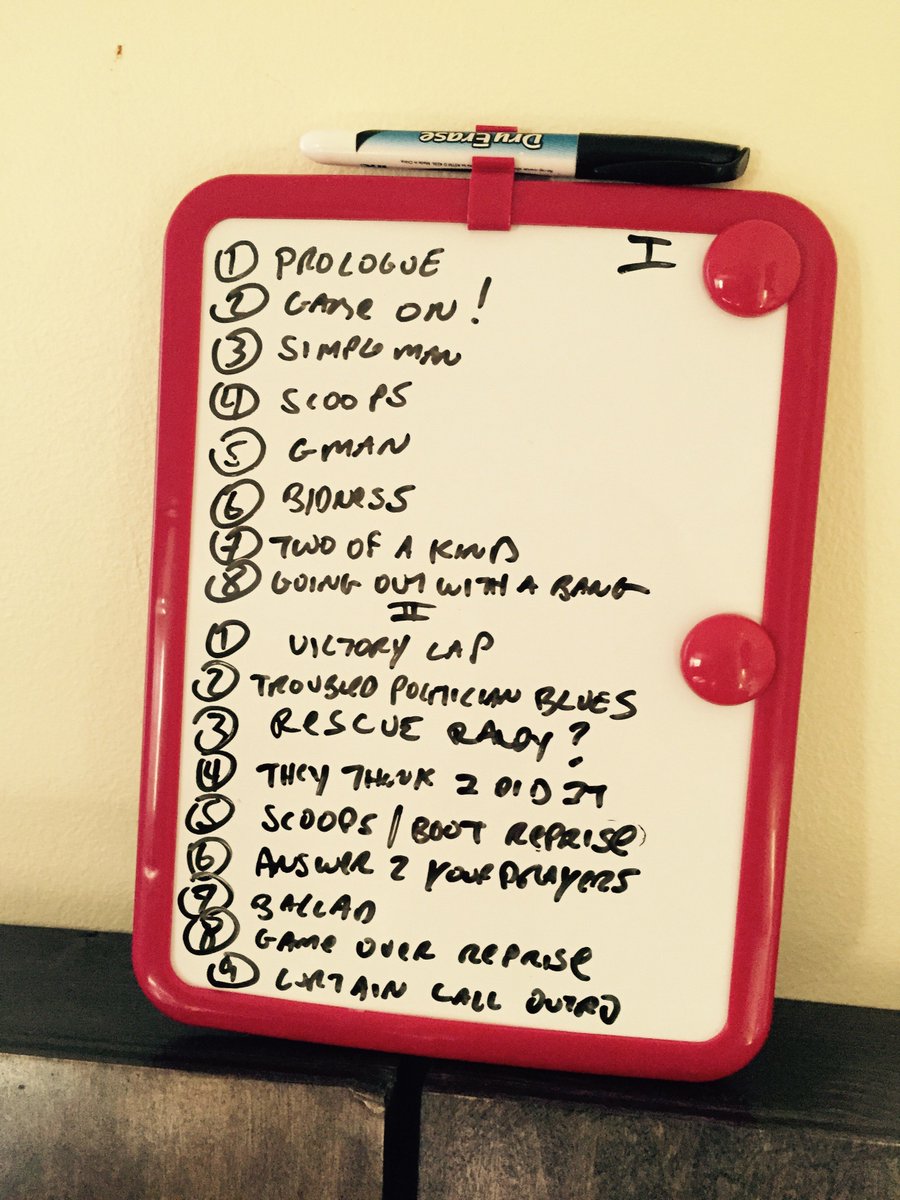 Dry Erase
① PROLOGUE
I
② GAME ON!
③ SIMPLE MAN
④ SCOOPS
⑤ GMAN
⑥ BIDNESS
⑦ TWO OF A KIND
⑧ GOING OUT WITH A BANG
II
① VICTORY LAP
② TROUBLED POLITICIAN BLUES
③ RESCUE READY?
④ THEY THINK I DID IT
⑤ SCOOPS / BOOT REPRISE
⑥ ANSWER 2 YOUR PRAYERS
⑦ BALLAD
⑧ GAME OVER REPRISE
⑨ CURTAIN CALL OUTRO